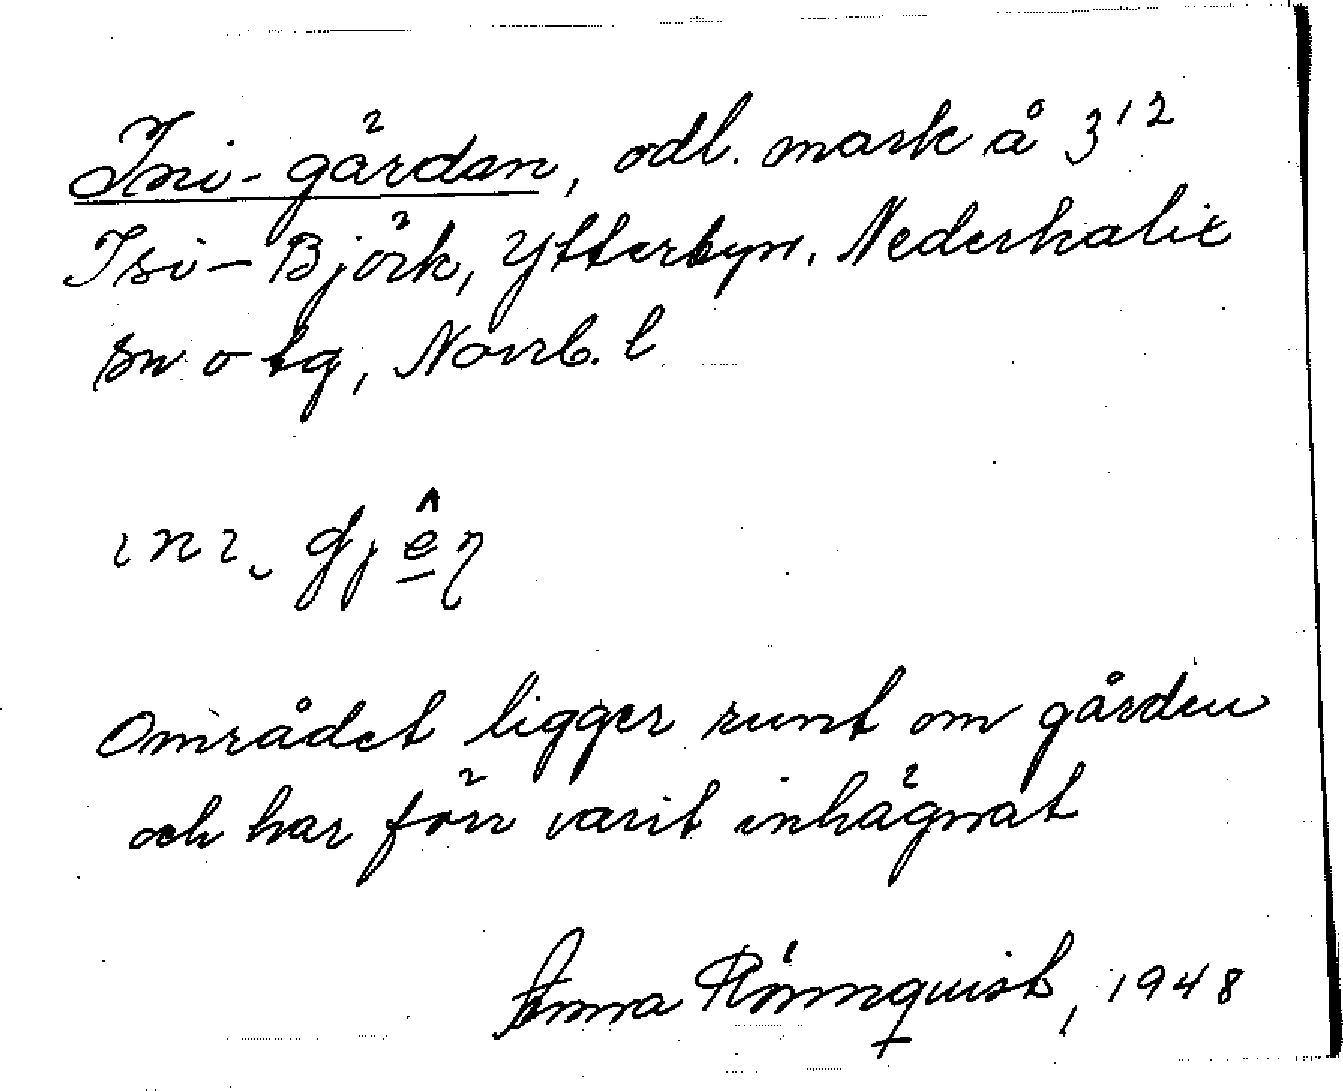 Ini-gärdan, odl. mark å 3¹²
Isi-Björk, Ytterbyn. Nederkalix
sn o tg, Norrb. l
ini‿ gjêṇ
Området ligger runt om gården
och har förr varit inhägnat
Anna Rönnquist, 1948